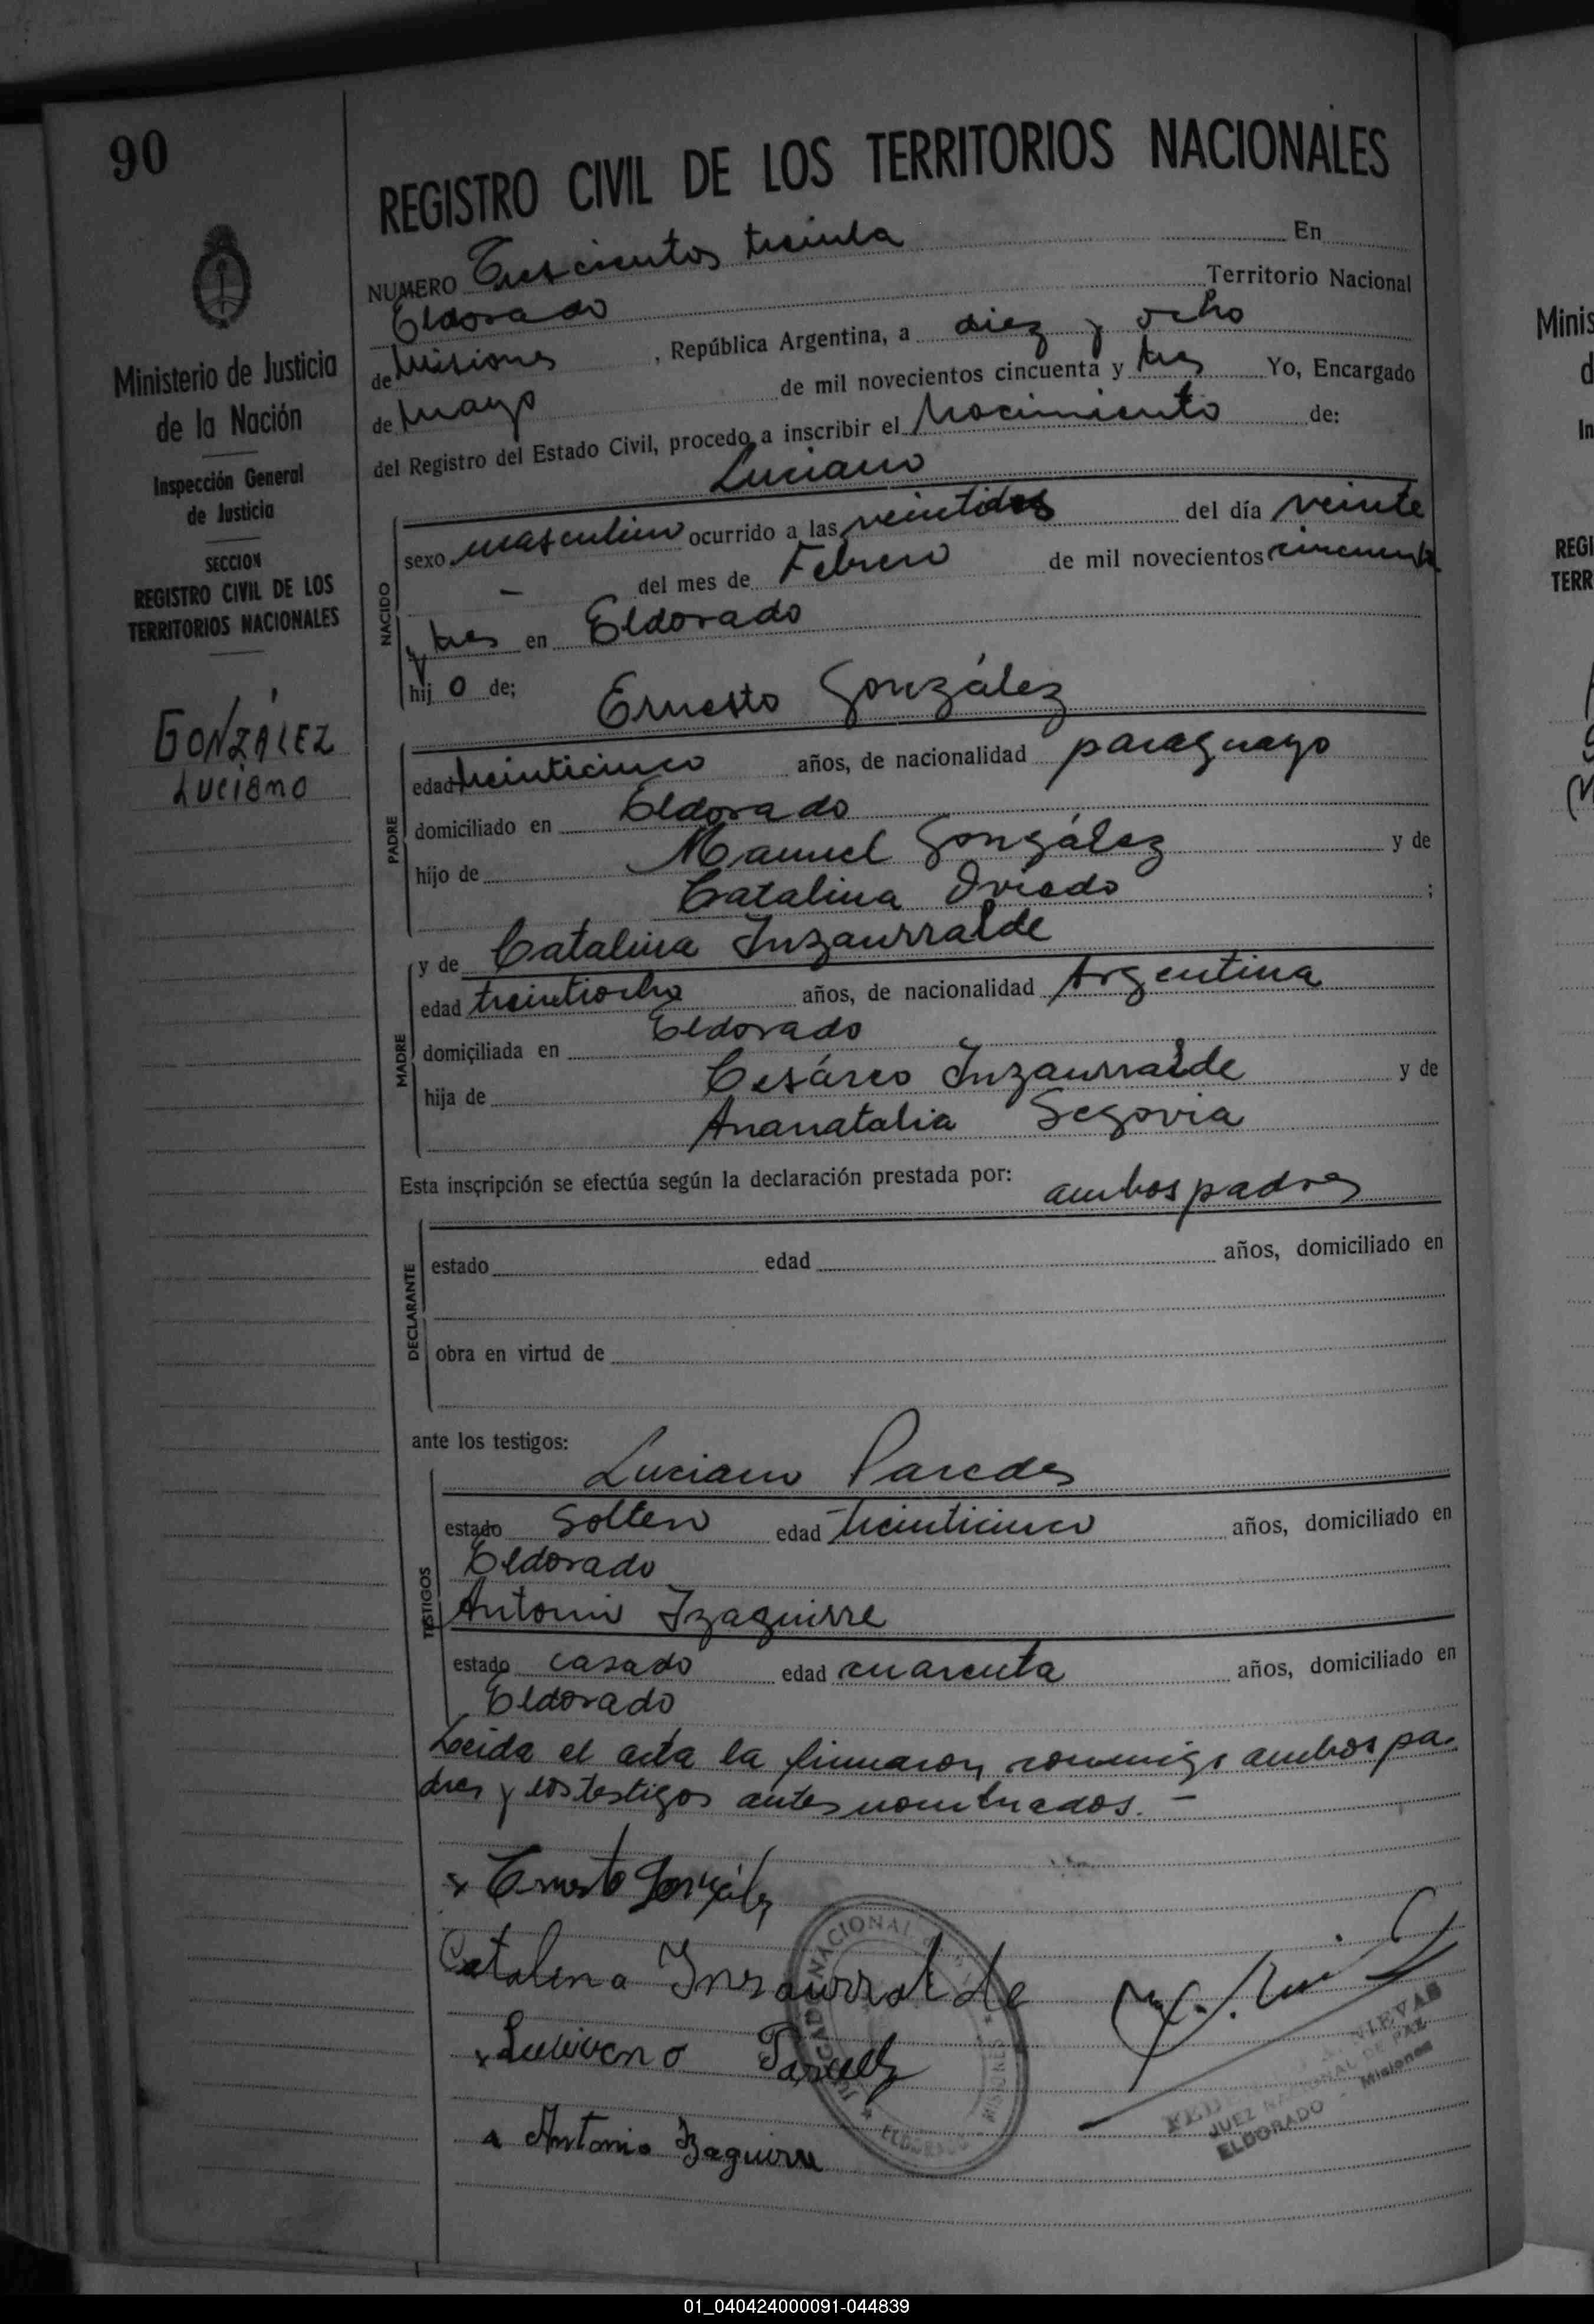 90
REGISTRO CIVIL DE LOS TERRITORIOS NACIONALES
NUMERO Trescientos treinta En
Eldorado Territorio Nacional
de Misiones , República Argentina, a diez y ocho
de mayo de mil novecientos cincuenta y tres Yo, Encargado
del Registro del Estado Civil, procedo a inscribir el Nacimiento de:
Luciano
Ministerio de Justicia
de la Nación
Inspección General
de Justicia
SECCION
REGISTRO CIVIL DE LOS
TERRITORIOS NACIONALES
GONZÁLEZ
Luciano
NACIDO
sexo masculino ocurrido a las veintidos del día veinte
- del mes de Febrero de mil novecientos cincuenta
y tres en Eldorado
hij o de; Ernesto González
PADRE
edad treinticinco años, de nacionalidad paraguayo
domiciliado en Eldorado
hijo de Manuel González y de
Catalina Oviedo ;
y de Catalina Inzaurralde
MADRE
edad treintiocho años, de nacionalidad Argentina
domiciliada en Eldorado
hija de Cesáreo Inzaurralde y de
Ananatalia Segovia
Esta inscripción se efectúa según la declaración prestada por: ambos padres
DECLARANTE
estado edad años, domiciliado en
obra en virtud de
ante los testigos:
Luciano Paredes
TESTIGOS
estado soltero edad treinticinco años, domiciliado en
Eldorado
Antonio Izaguirre
estado casado edad cuarenta años, domiciliado en
Eldorado
Leida el acta la firmaron conmigo ambos pa-
dres y los testigos antes nombrados. -
x Ernesto González
Catalina Inzaurralde
x Luciano Paredes
Antonio Izaguirre
JUZGADO NACIONAL
ELDORADO
MISIONES
JUEZ NACIONAL DE PAZ
ELDORADO - Misiones
Minis
d
In
REGI
TERR
01_040424000091-044839